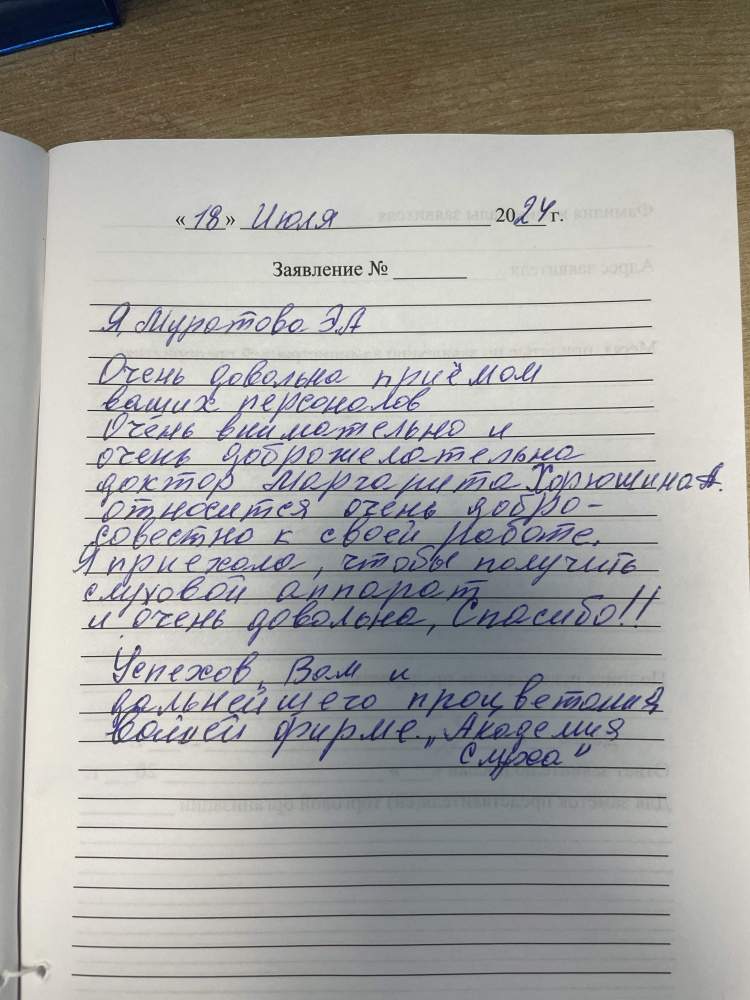 « 18 » Июля 2024 г.
Заявление №
Я, Муратова ЭА
Очень довольна приёмом
ваших персоналов
Очень внимательно и
очень доброжелательна
доктор Маргарита Хорюшина А.
относится очень добро-
совестно к своей работе.
Я приехала, чтобы получить
слуховой аппарат
и очень довольна, Спасибо!!
Успехов, Вам и
дальнейшего процветания
вашей фирме. „Академия
Слуха"